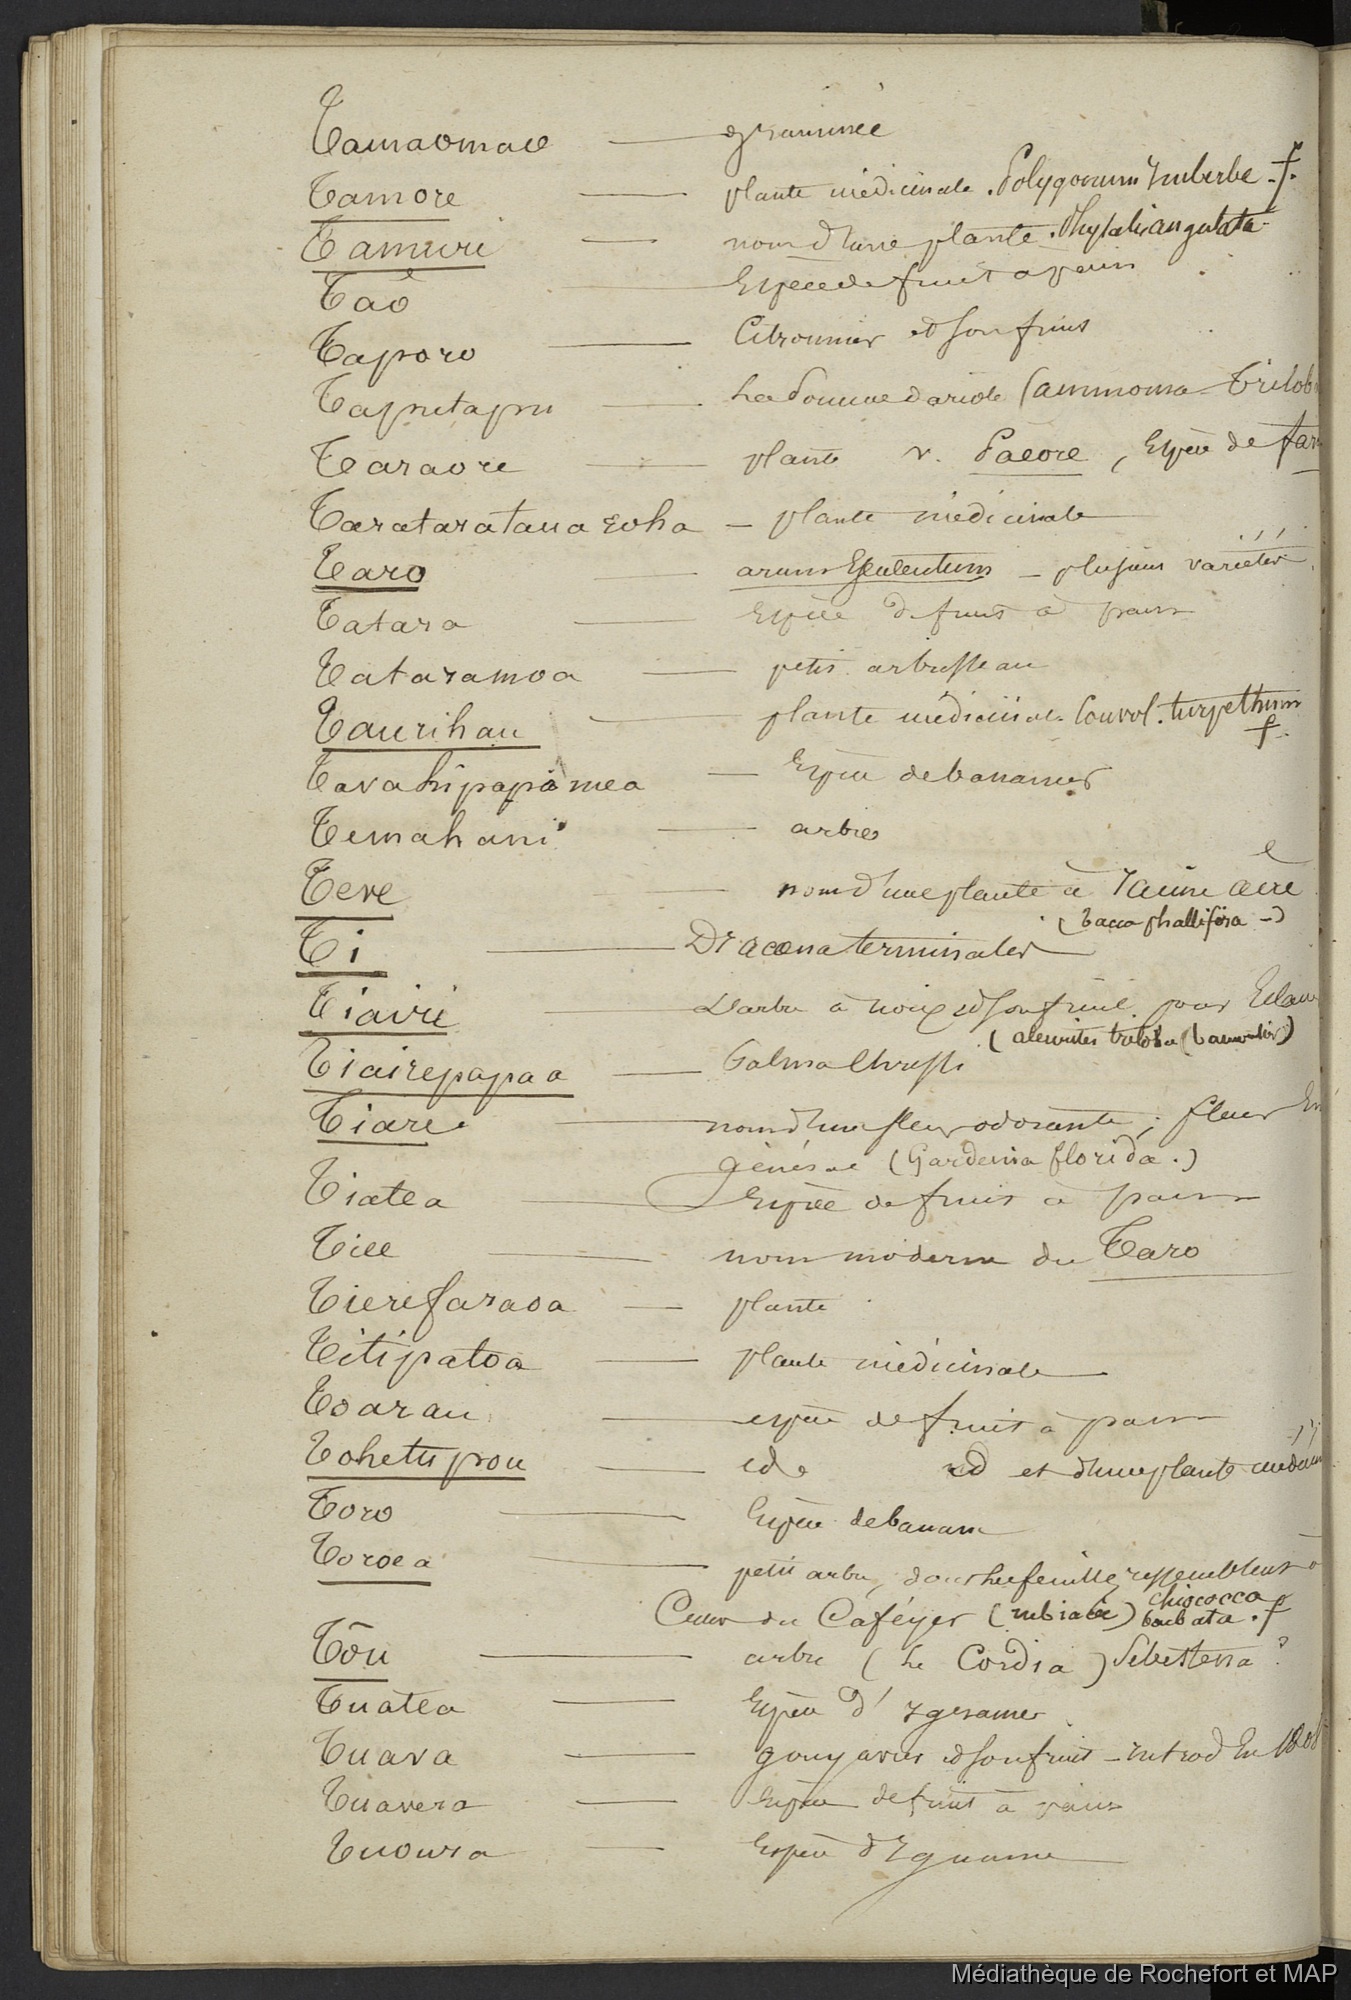 Tamaomaoe — graminée
Tamore — plante médicinale. Polygonum Imberbe. f.
Tamuri — nom d'une plante. Physalis angulata.
Taô — Espece de fruit a pain
Taporo — Citronnier et son fruit
Taputapu — La Pomme Cariole (ammona Trilob
Taraore — plante v. Paeore, Espèce de fara
Tarataratauaroha — plante médicinale
Taro — arum Esculentum — plusieurs variétés.
Tatara — Espèce de fruit à pain
Tataramoa — petit arbrisseau
Taurihau — plante médicinale. Convol. turpethum
f.
Tavahipapamea — Espèce de bananier
Temahani — arbre
Teve — nom d'une plante à racine acre
(tacca phallifera -)
Ti — Dracœna terminales
Tiairi — L'arbre à noix et son fruit pour Eclair
(aleurites triloba (bancoulier)
Tiairepapaa — Palma Christi
Tiare — nom d'une fleur odorante; fleur En
général (Gardenia florida.)
Tiatea — Espèce de fruit à pain
Tiee — nom moderne du Taro
Tierefaraoa — plante
Titipatoa — plante médicinale
Toarau — espèce de fruit à pain
Tohetupou — id id et d'une plante médicin
Toro — Espèce de banane
Toroea — petit arbre, dont les feuilles ressemblent à
Celles du Caféyer (rubiacée) chiococca
barbata. f
Tôu — arbre (Le Cordia) Sebestena?
Tuatea — Espèce d'Ygname
Tuava — gouyavier et son fruit — introd En 1808
Tuavera — Espèce de fruit à pain
Tuoura — Espèce d'Ygname
Médiathèque de Rochefort et MAP